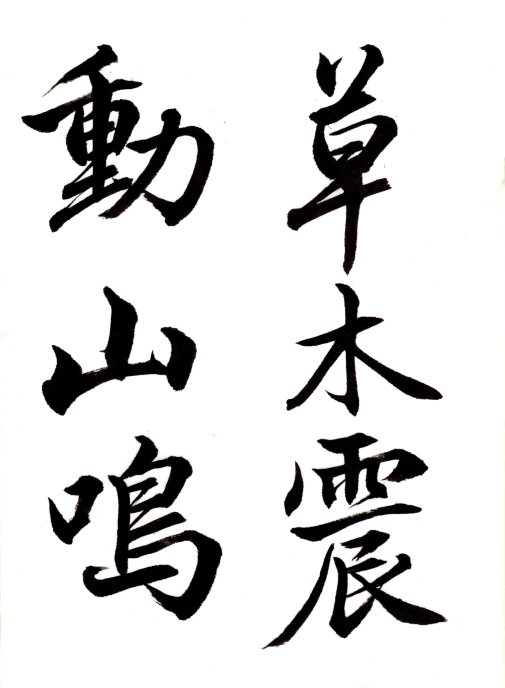 草木震
動山鳴